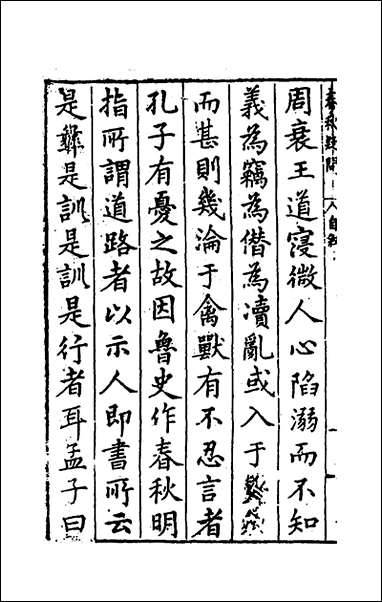 周衰王道寖微人心陷溺而不知
義為竊為僣為瀆亂或入于
而甚則幾淪于禽獸有不忍言者
孔子有憂之故因魯史作春秋明
指所謂道路者以示人即書所云
是彝是訓是訓是行者耳孟子曰
春秋疑問 自叙